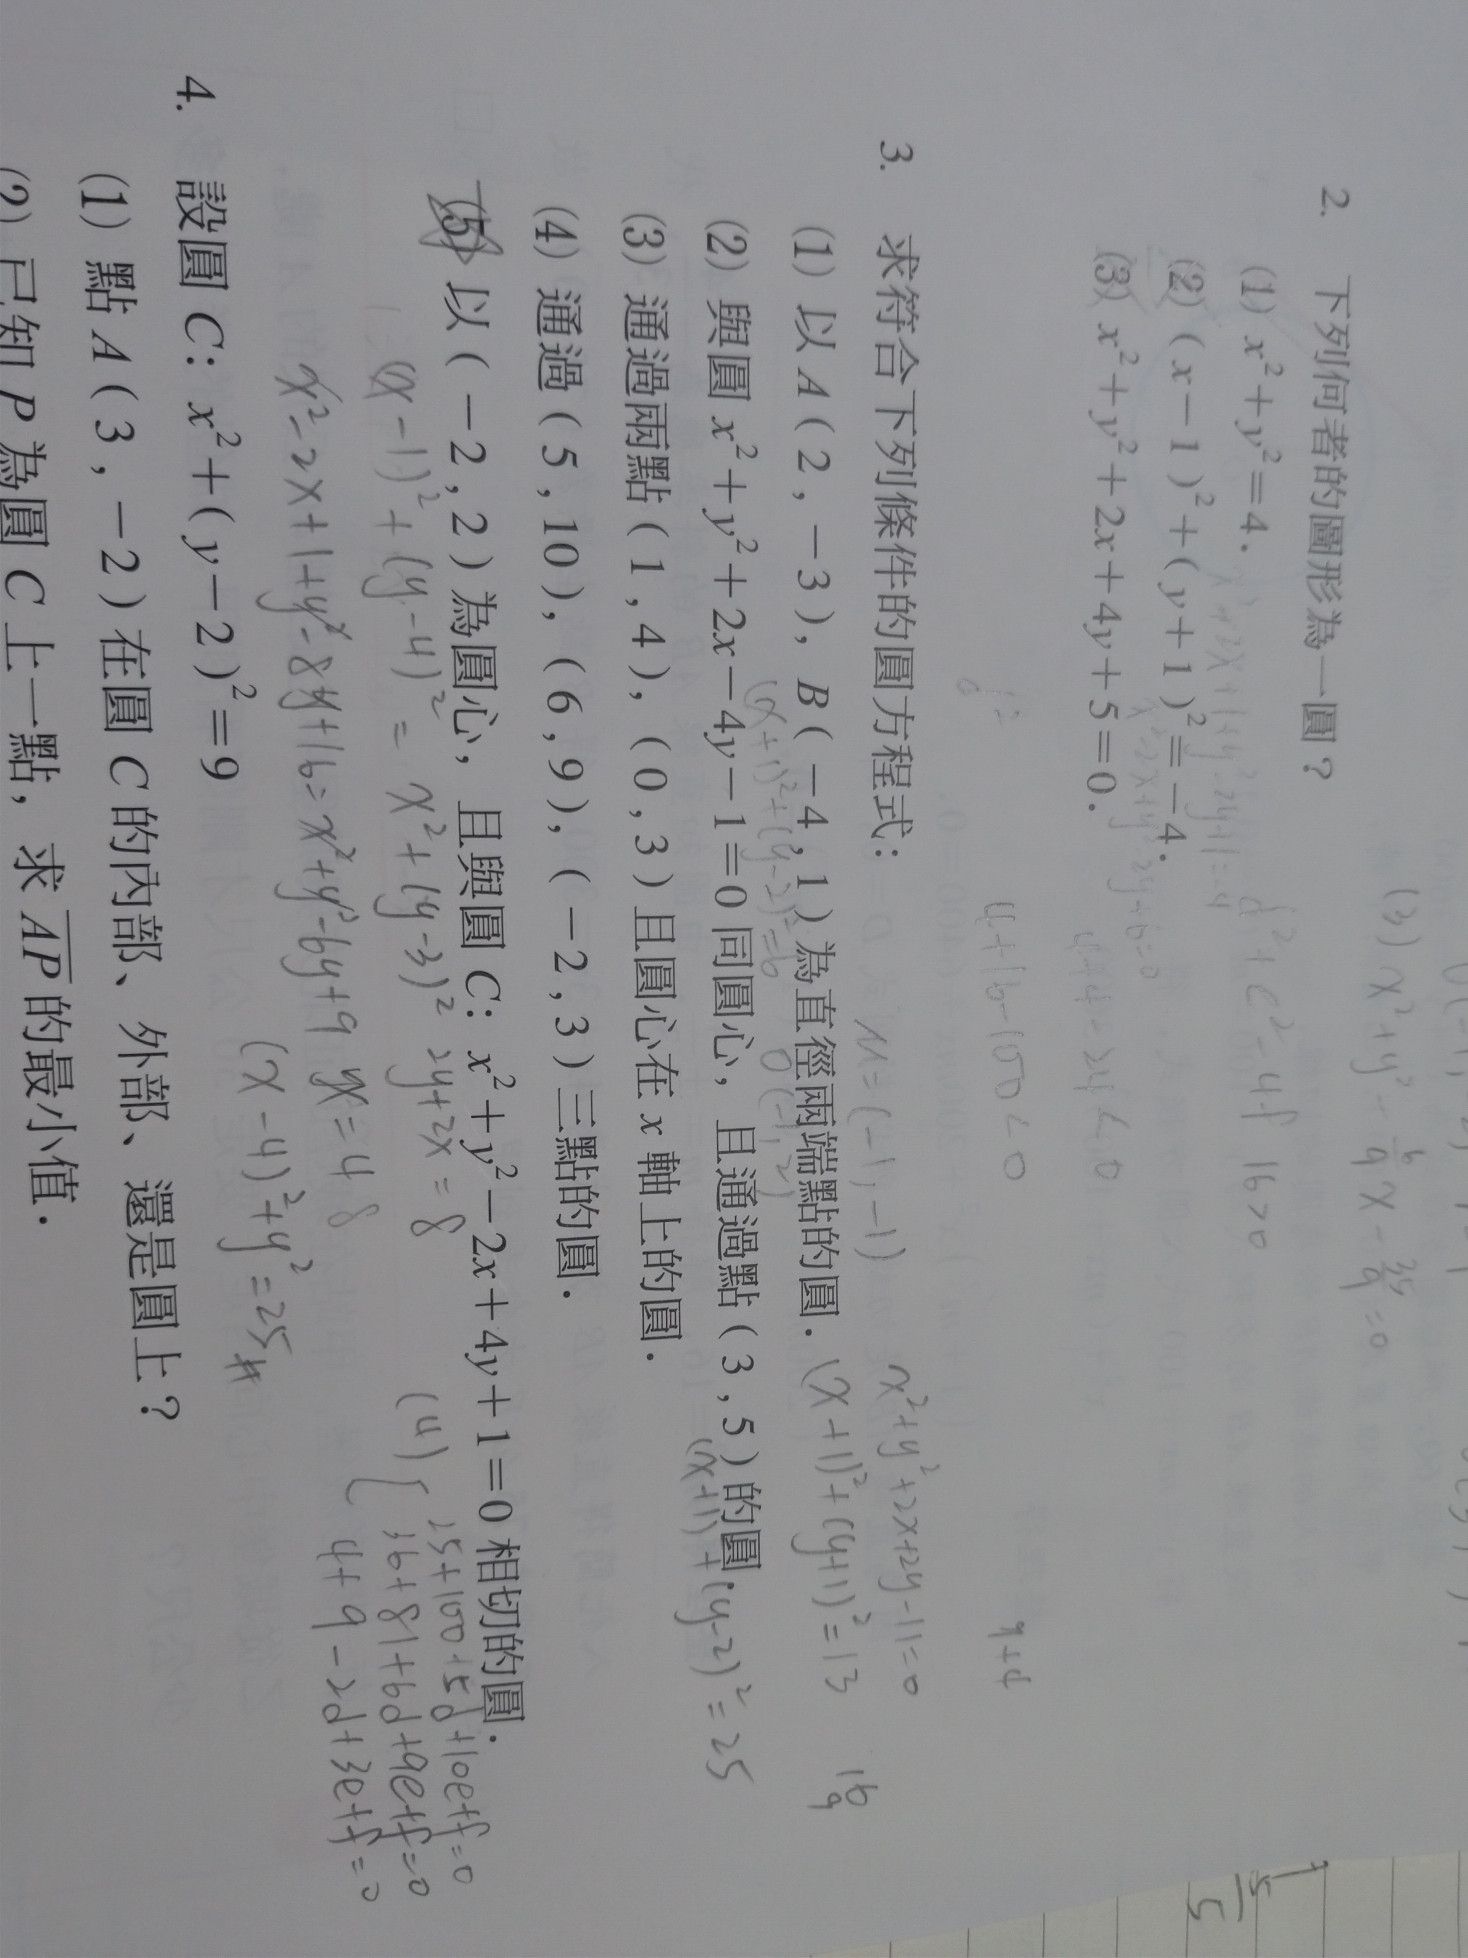 2. 下列何者的圖形為一圓？
(1) x²+y²=4.
(2) (x-1)²+(y+1)²=-4.
(3) x²+y²+2x+4y+5=0.
(3) x²+y²
16>0
4+16-100<0
9+d
3. 求符合下列條件的圓方程式：
M=(-1,-1)
x²+y²+2x+2y-11=0
(1) 以A(2,-3), B(-4,1)為直徑兩端點的圓.
(x+1)²+(y+1)²=13
16
9
(x+1)²+(y-2)²=6
O(-1,2)
(2) 與圓 x²+y²+2x-4y-1=0 同圓心，且通過點(3,5)的圓.
(x+1)²+(y-2)²=25
(3) 通過兩點(1,4), (0,3)且圓心在x軸上的圓.
(4) 通過(5,10), (6,9), (-2,3)三點的圓.
(5) 以(-2,2)為圓心，且與圓 C: x²+y²-2x+4y+1=0 相切的圓.
(x-1)²+(y-4)²=x²+(y-3)² 2y+2x=8
x²-2x+1+y²-8y+16=x²+y²-6y+9
x=4
(x-4)²+y²=25
(4) { 25+100+5d+10e+f=0
36+81+6d+9e+f=0
4+9-2d+3e+f=0
4. 設圓 C: x²+(y-2)²=9
(1) 點A(3,-2)在圓C的內部、外部、還是圓上？
(2) 已知P為圓C上一點，求AP的最小值.